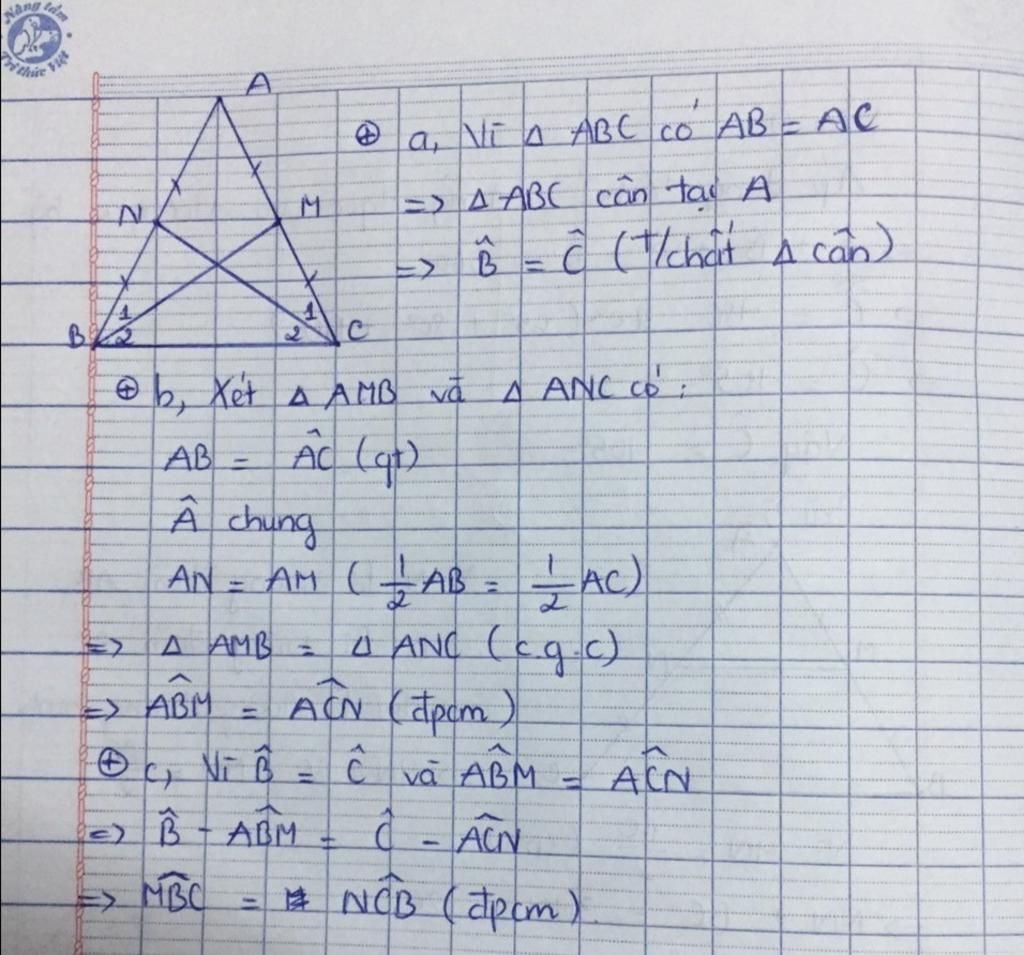 Nâng tầm
Tri thức Việt
A
N
M
B
C
1
2
1
2
⊕ a, Vì Δ ABC có AB = AC
=> Δ ABC cân tại A
=> B̂ = Ĉ (T/chất Δ cân)
⊕ b, Xét Δ AMB và Δ ANC có :
AB = AĈ (gt)
Â chung
AN = AM ( 1/2 AB = 1/2 AC)
=> Δ AMB = Δ ANC (c.g.c)
=> AB̂M = AĈN (đpcm)
⊕ c, Vì B̂ = Ĉ và AB̂M = AĈN
=> B̂ - AB̂M = Ĉ - AĈN
=> MB̂C = NĈB (đpcm).